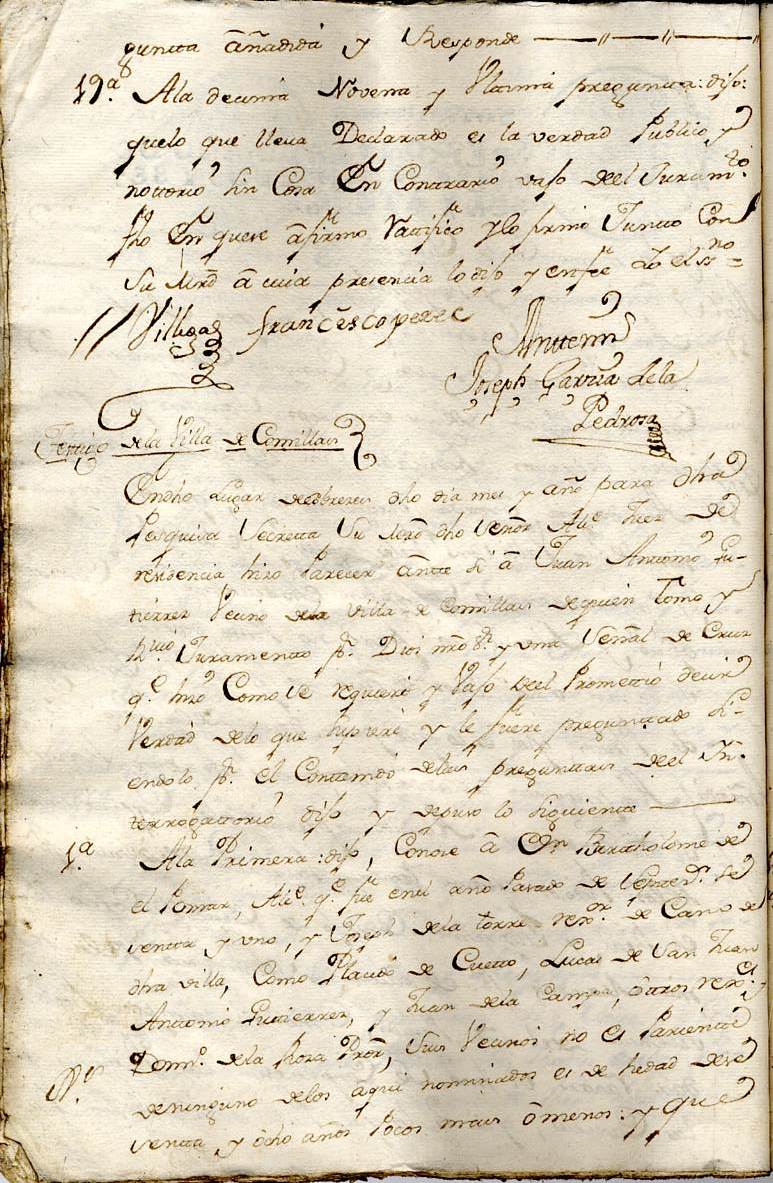 gunta añadida y Responde
19ª Ala decima Novena y Ultima pregunta: dijo:
quelo que lleva Declarado es la verdad Publico, y
nottorio sin Cosa En Contrario vajo deel Juramto.
fho En quese afirmo Ratifico y lo firmo Juntto Con
Su Mrd a cuia presencia lo dijo y enfee do el Sno =
Villegas francisco perez
Anttemi
Joseph Garzia dela
Pedrosa
Testigo dela Villa de Comillas
En dho Lugar de dho dia mes y año para dha
Pesquisa Secreta Su Mrd dho Señor Alce. Juez de
residencia hizo Parecer ante Si a Juan Antonio Gu-
tierrez Vecino dela villa de Comillas de quien Tomo y
Juramento pr. Dios nro Sr. y una Señal de Cruz
qe. hizo Como se requiere y Vajo deel Promettio decir
Verdad delo que supiere y le fuere preguntado Si-
endolo pr. el Contenido delas preguntas deel In-
terrogattorio dijo y depuso lo Siguiente
1ª Ala Primera: dijo, Conoce a Dn Bartholome de
el Pomar, Alce. qe. fue enel año Pasado de Settezs. se
senta y uno, y Joseph dela torre rexor. de Cano de
dha villa, Como Placido de Cuetto, Lucas de San Juan
Antonio Guttierrez, y Juan dela Campa, ôttros rexes. y
Domo. dela Roza Pror, Sus Vecinos no es Pariente
deninguno delos aqui nominados es de hedad de se
senta y ôcho años Pocos mas ô menos: y que